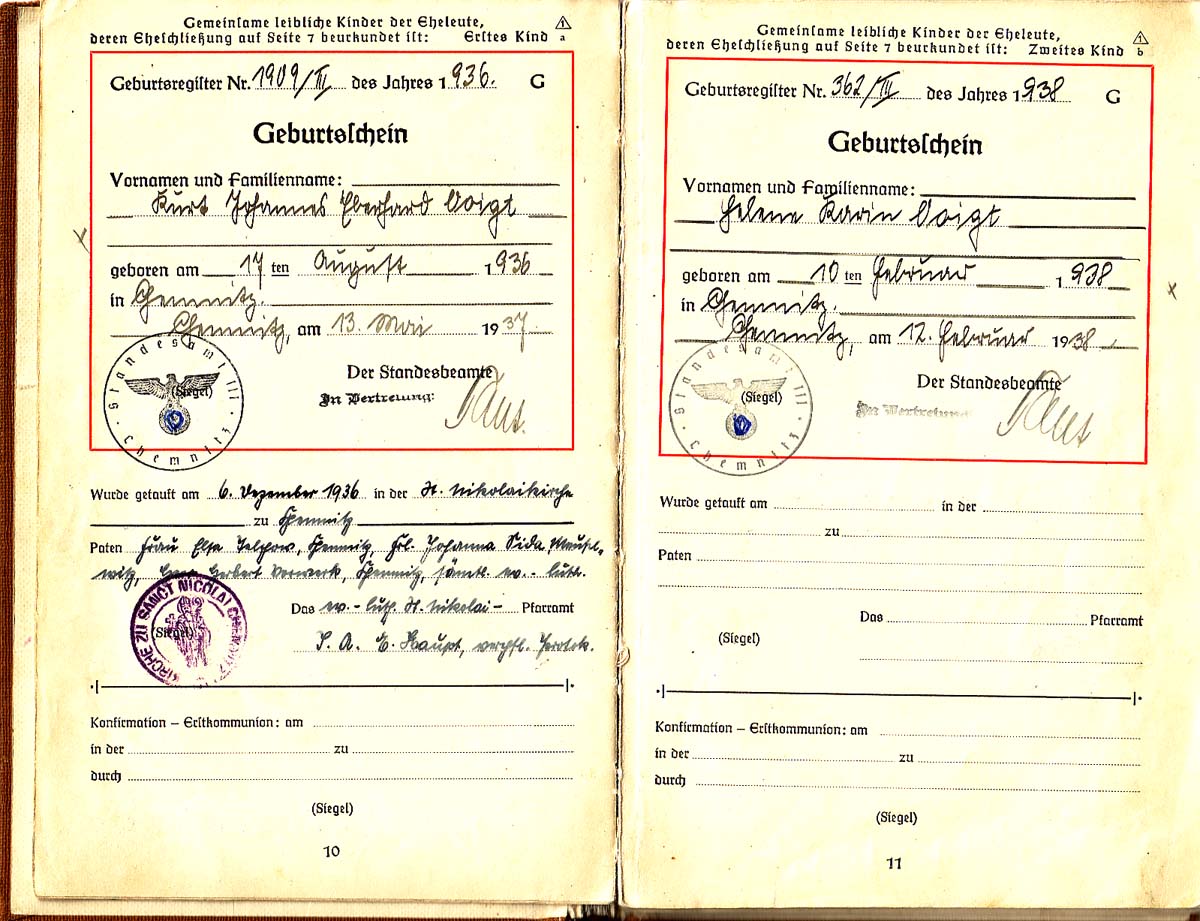 Gemeinsame leibliche Kinder der Eheleute,
deren Eheschließung auf Seite 7 beurkundet ist: Erstes Kind 1 a
Geburtsregister Nr. 1909/III des Jahres 1936. G
Geburtsschein
Vornamen und Familienname:
Kurt Johannes Eberhard Voigt
geboren am 17 ten August 1936
in Chemnitz.
Chemnitz, am 13. Mai 1937.
Standesamt III Chemnitz
(Siegel)
Der Standesbeamte
In Vertretung:
Wurde getauft am 6. Dezember 1936 in der St. Nikolaikirche
zu Chemnitz
Paten Frau Else Chemnitz, Frl. Johanna Meusel-
witz, Herbert Vorwerk, Chemnitz, sämtl. ev.-luth.
KIRCHE ZU SANCT NICOLAI CHEMNITZ
(Siegel)
Das ev.-luth. St. Nikolai- Pfarramt
I. A. E. Haupt,
Konfirmation – Erstkommunion: am
in der zu
durch
(Siegel)
10
Gemeinsame leibliche Kinder der Eheleute,
deren Eheschließung auf Seite 7 beurkundet ist: Zweites Kind 1 b
Geburtsregister Nr. 362/III des Jahres 1938 G
Geburtsschein
Vornamen und Familienname:
Helene Karin Voigt
geboren am 10 ten Februar 1938
in Chemnitz.
Chemnitz, am 12. Februar 1938.
Standesamt III Chemnitz
(Siegel)
Der Standesbeamte
In Vertretung:
Wurde getauft am in der
zu
Paten
Das Pfarramt
(Siegel)
Konfirmation – Erstkommunion: am
in der zu
durch
(Siegel)
11